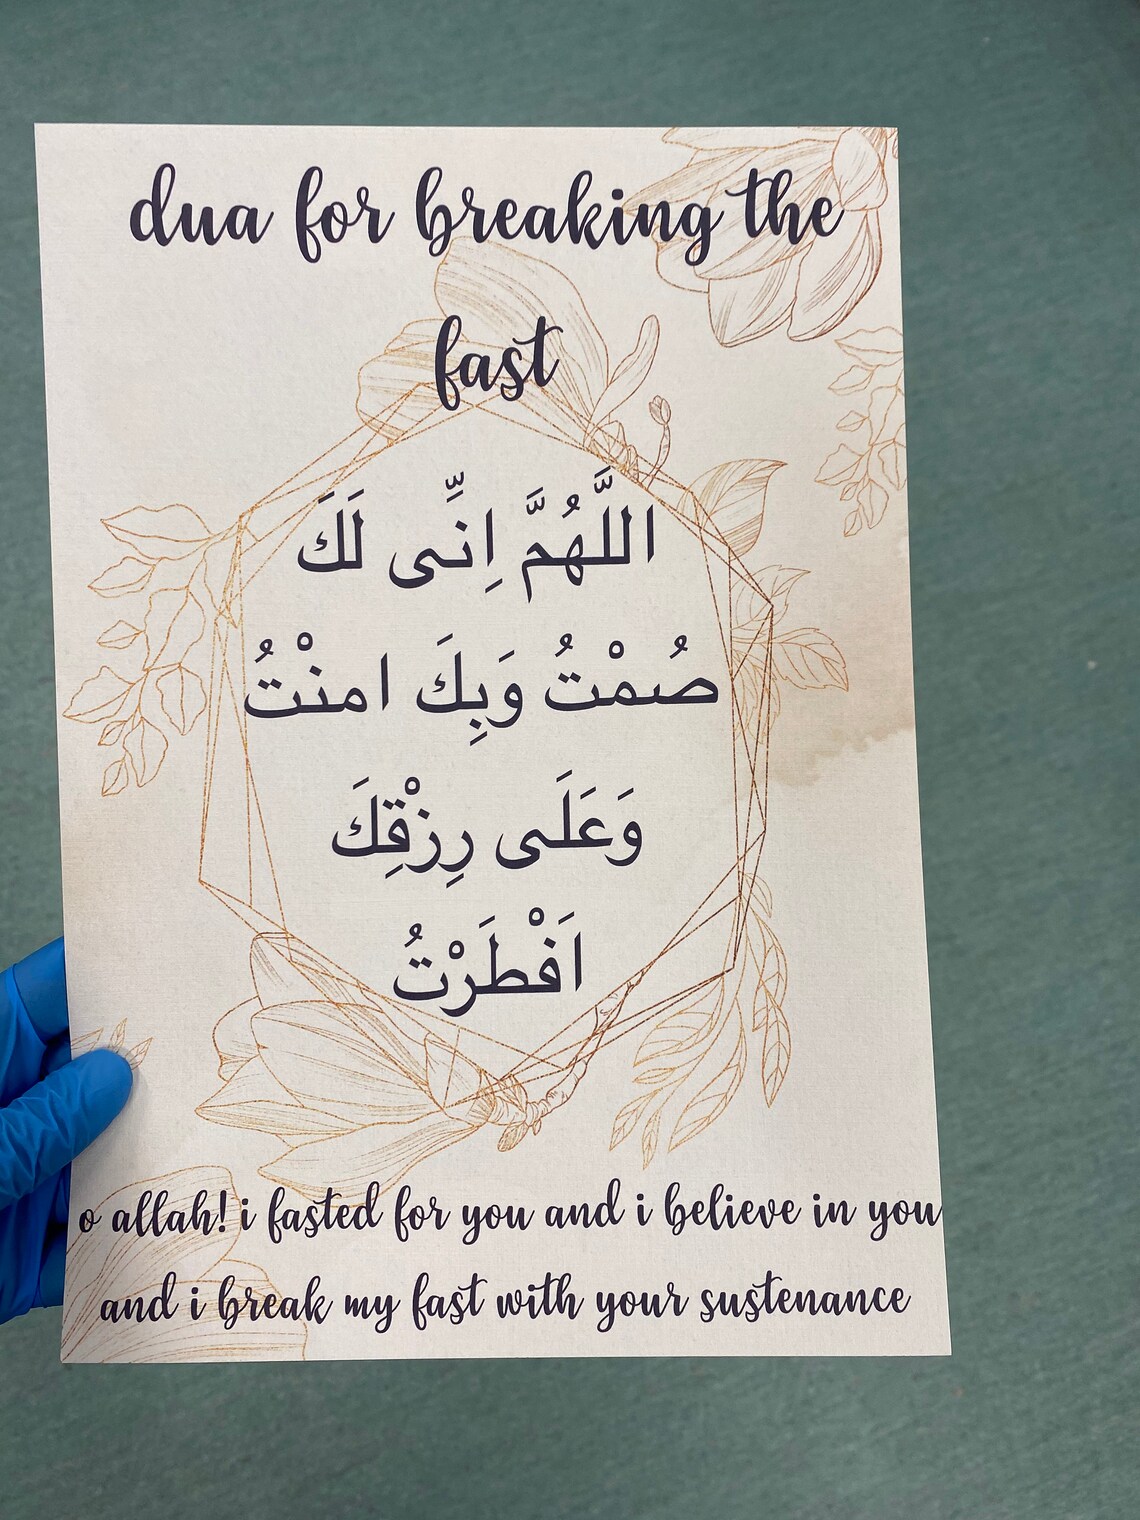 dua for breaking the
fast
اللَّهُمَّ اِنِّى لَكَ
صُمْتُ وَبِكَ امنْتُ
وَعَلَى رِزْقِكَ
اَفْطَرْتُ
o allah! i fasted for you and i believe in you
and i break my fast with your sustenance